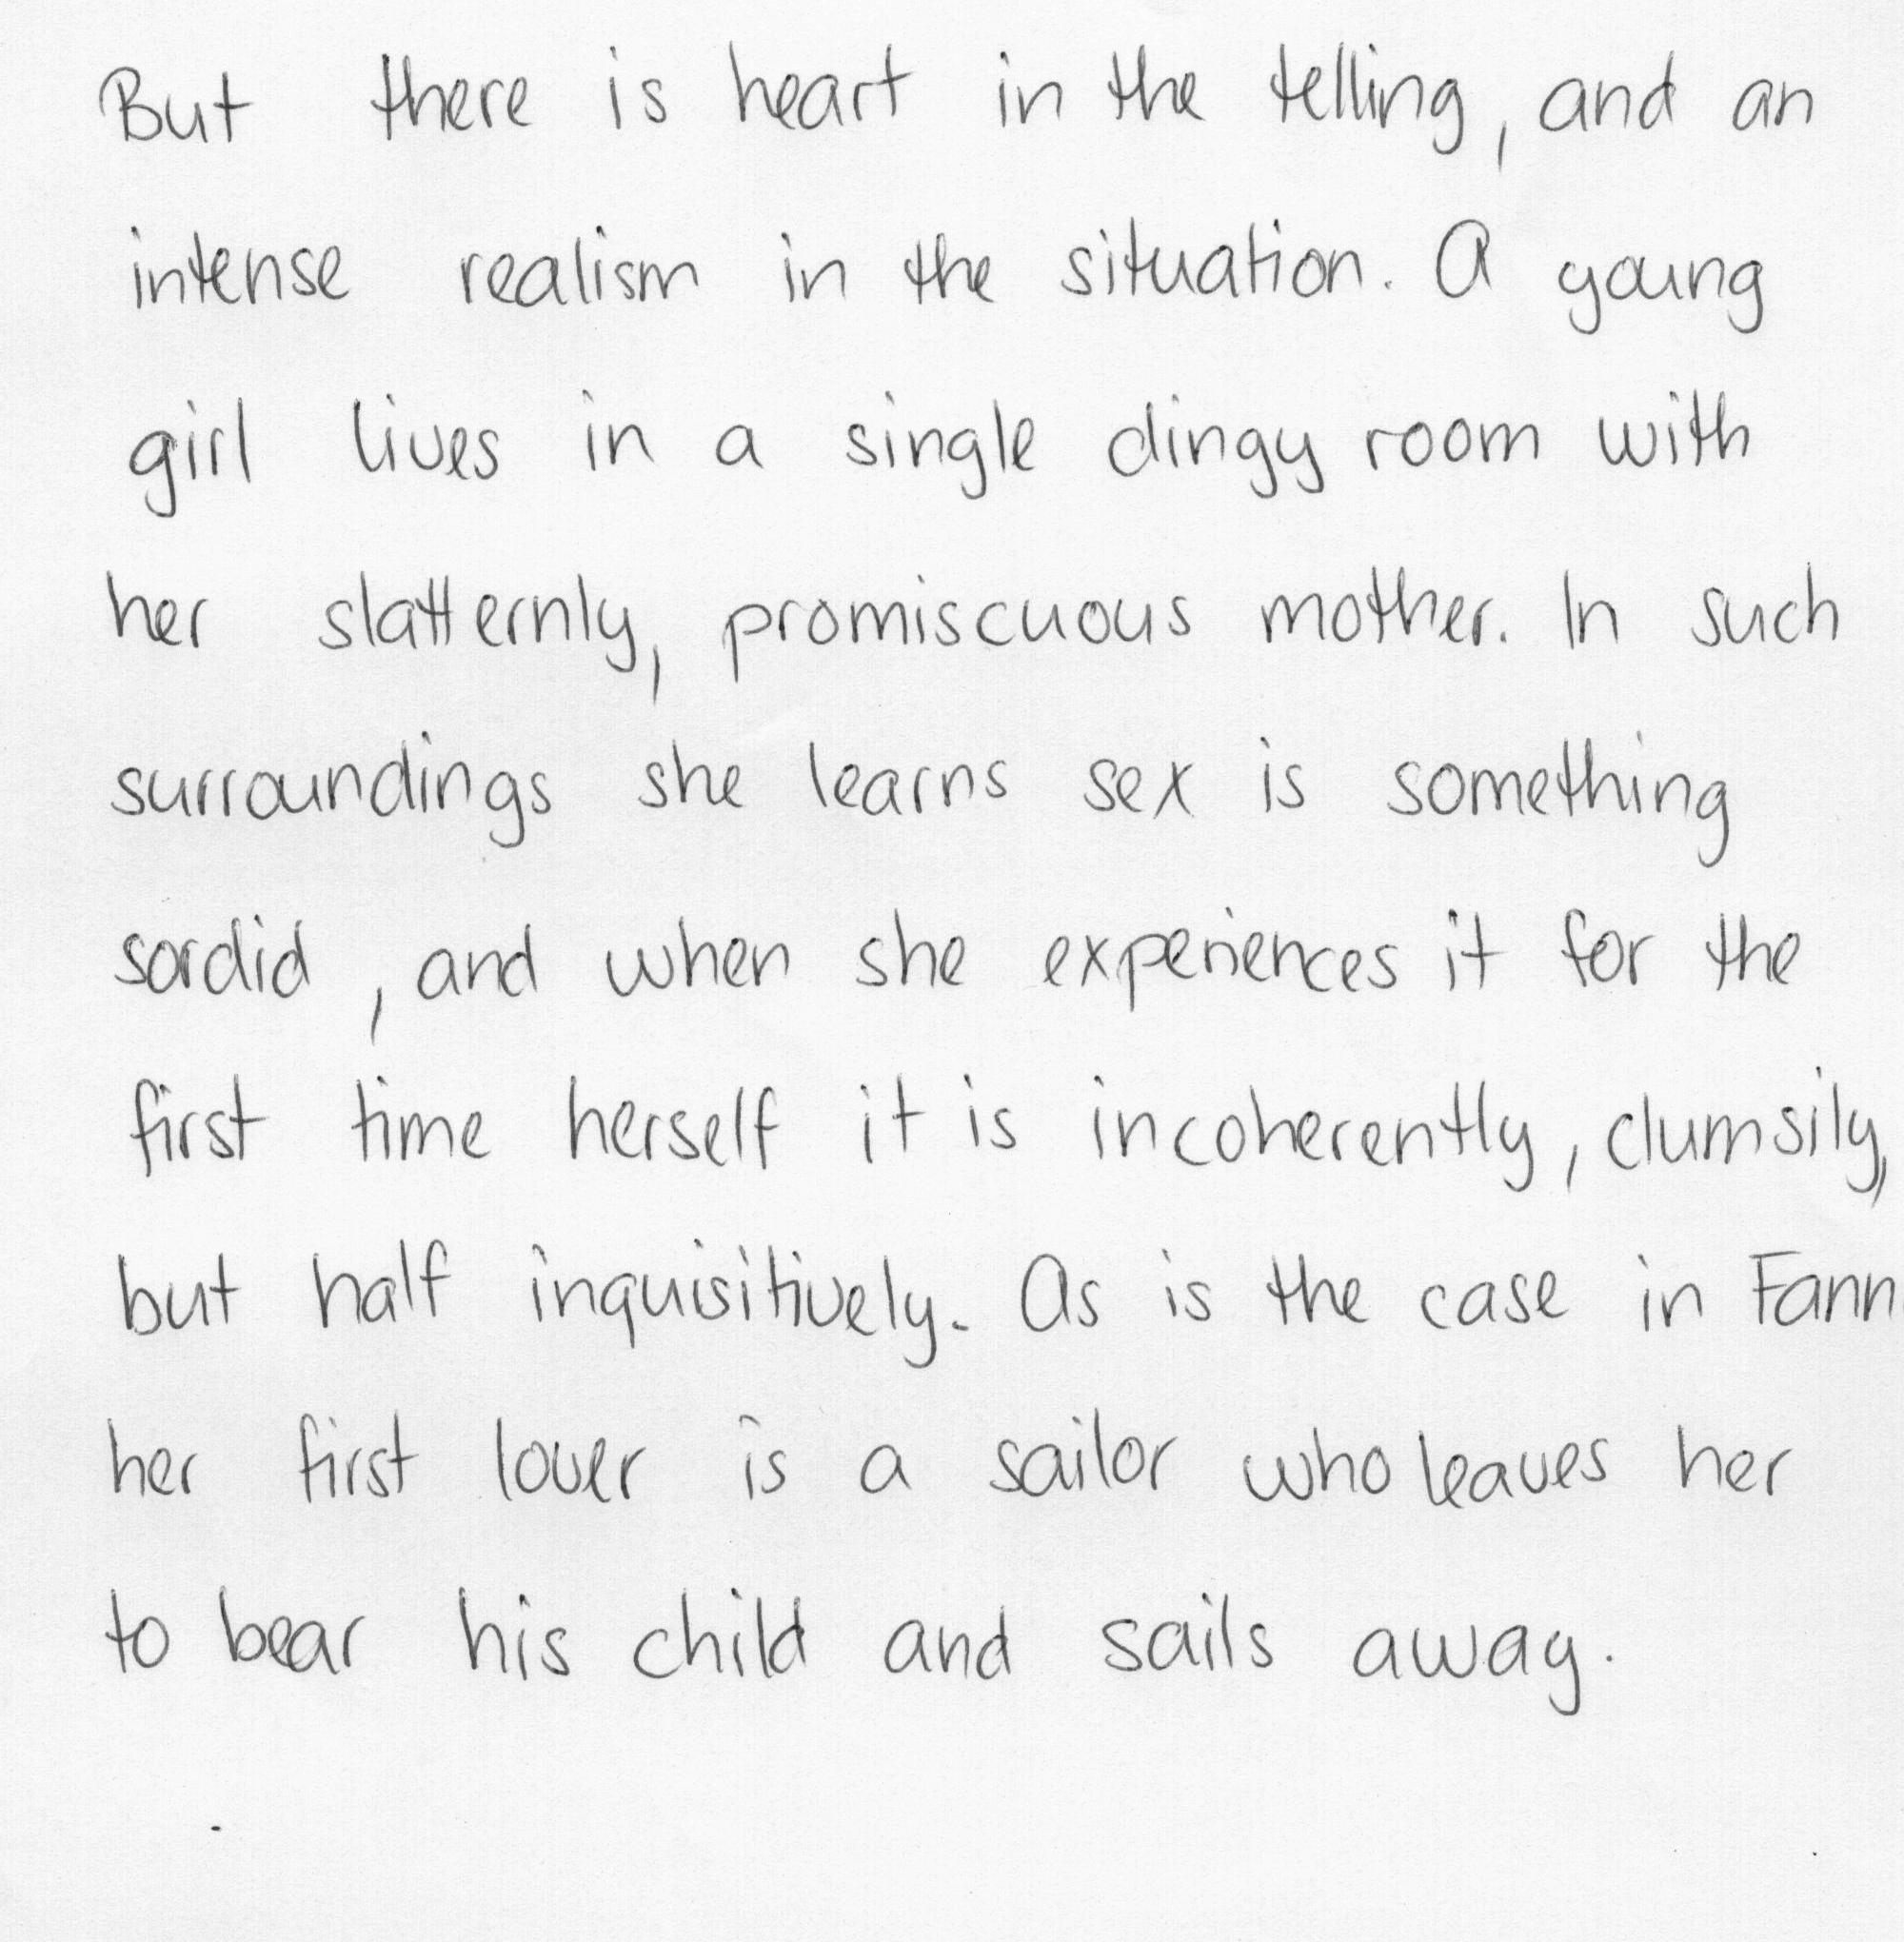 But there is heart in the telling, and an
intense realism in the situation. A young
girl lives in a single dingy room with
her slatternly, promiscuous mother. In such
surroundings she learns sex is something
sordid, and when she experiences it for the
first time herself it is incoherently, clumsily,
but half inquisitively. As is the case in Fann
her first lover is a sailor who leaves her
to bear his child and sails away.